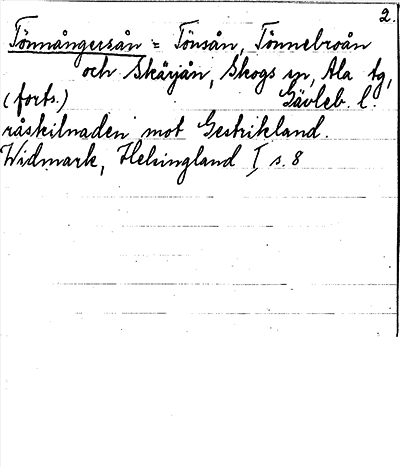 2.
Tönnångersån = Tönsån, Tönnebroån
och Skärjån, Skogs sn, Ala tg,
(forts.) Gävleb. l.
råskilnaden mot Gestrikland.
Widmark, Helsingland I s. 8